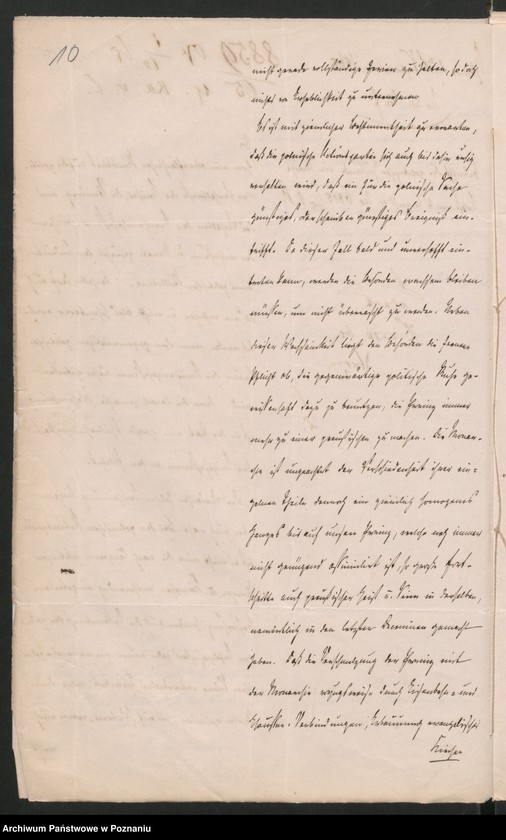 10
nicht gerade vollständige Ferien zu halten, so doch
nichts von Erheblichkeit zu unternehmen
Es ist mit ziemlicher Bestimmtheit zu erwarten,
daß die polnische Actionspartei sich auch bis dahin ruhig
verhalten wird, daß ein für die polnische Sache
günstiges, oder scheinbar günstiges Ereigniß ein-
trifft. Da dieser Fall bald und unverhofft ein-
treten kann, werden die Behörden wachsam bleiben
müssen, um nicht überrascht zu werden. Neben
dieser Wachsamkeit liegt den Behörden die fernere
Pflicht ob, die gegenwärtige politische Ruhe ge-
wissenhaft dazu zu benutzen, die Provinz immer
mehr zu einer preußischen zu machen. Die Monar-
chie ist ungeachtet der Verschiedenheit ihrer ein-
zelnen Theile dennoch ein ziemlich homogenes
Ganzes bis auf unsere Provinz, welche noch immer
nicht genügend assimilirt ist, so große Fort-
schritte auch preußischer Geist u. Sinn in derselben,
namentlich in den letzten Decennien gemacht
haben. Daß die Verschmelzung der Provinz mit
der Monarchie vorzugsweise durch Eisenbahn- und
Chaussee-Verbindungen, Erbauung evangelischer
Kirchen
Archiwum Państwowe w Poznaniu